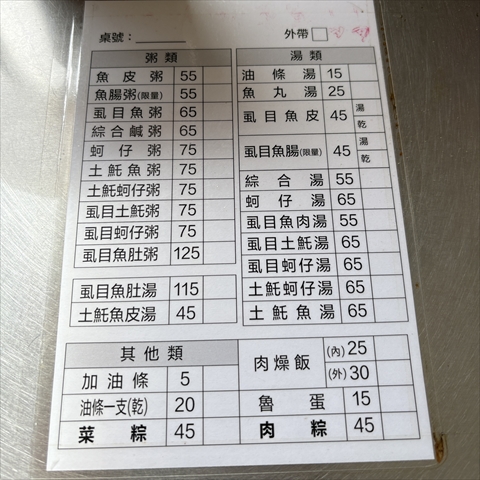 桌號：＿＿＿ 外帶□
粥類
魚皮粥 55
魚腸粥(限量) 55
虱目魚粥 65
綜合鹹粥 65
蚵仔粥 75
土魠魚粥 75
土魠蚵仔粥 75
虱目土魠粥 75
虱目蚵仔粥 75
虱目魚肚粥 125
虱目魚肚湯 115
土魠魚皮湯 45
湯類
油條湯 15
魚丸湯 25
虱目魚皮 45 湯 乾
虱目魚腸(限量) 45 湯 乾
綜合湯 55
蚵仔湯 65
虱目魚肉湯 55
虱目土魠湯 65
虱目蚵仔湯 65
土魠蚵仔湯 65
土魠魚湯 65
其他類
加油條 5
油條一支(乾) 20
菜粽 45
肉燥飯 (內) 25
(外) 30
魯蛋 15
肉粽 45